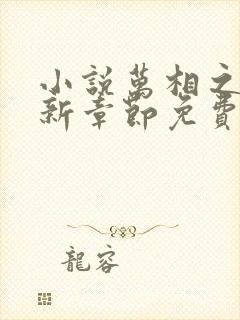 小說萬相之
新章節免費
龍容